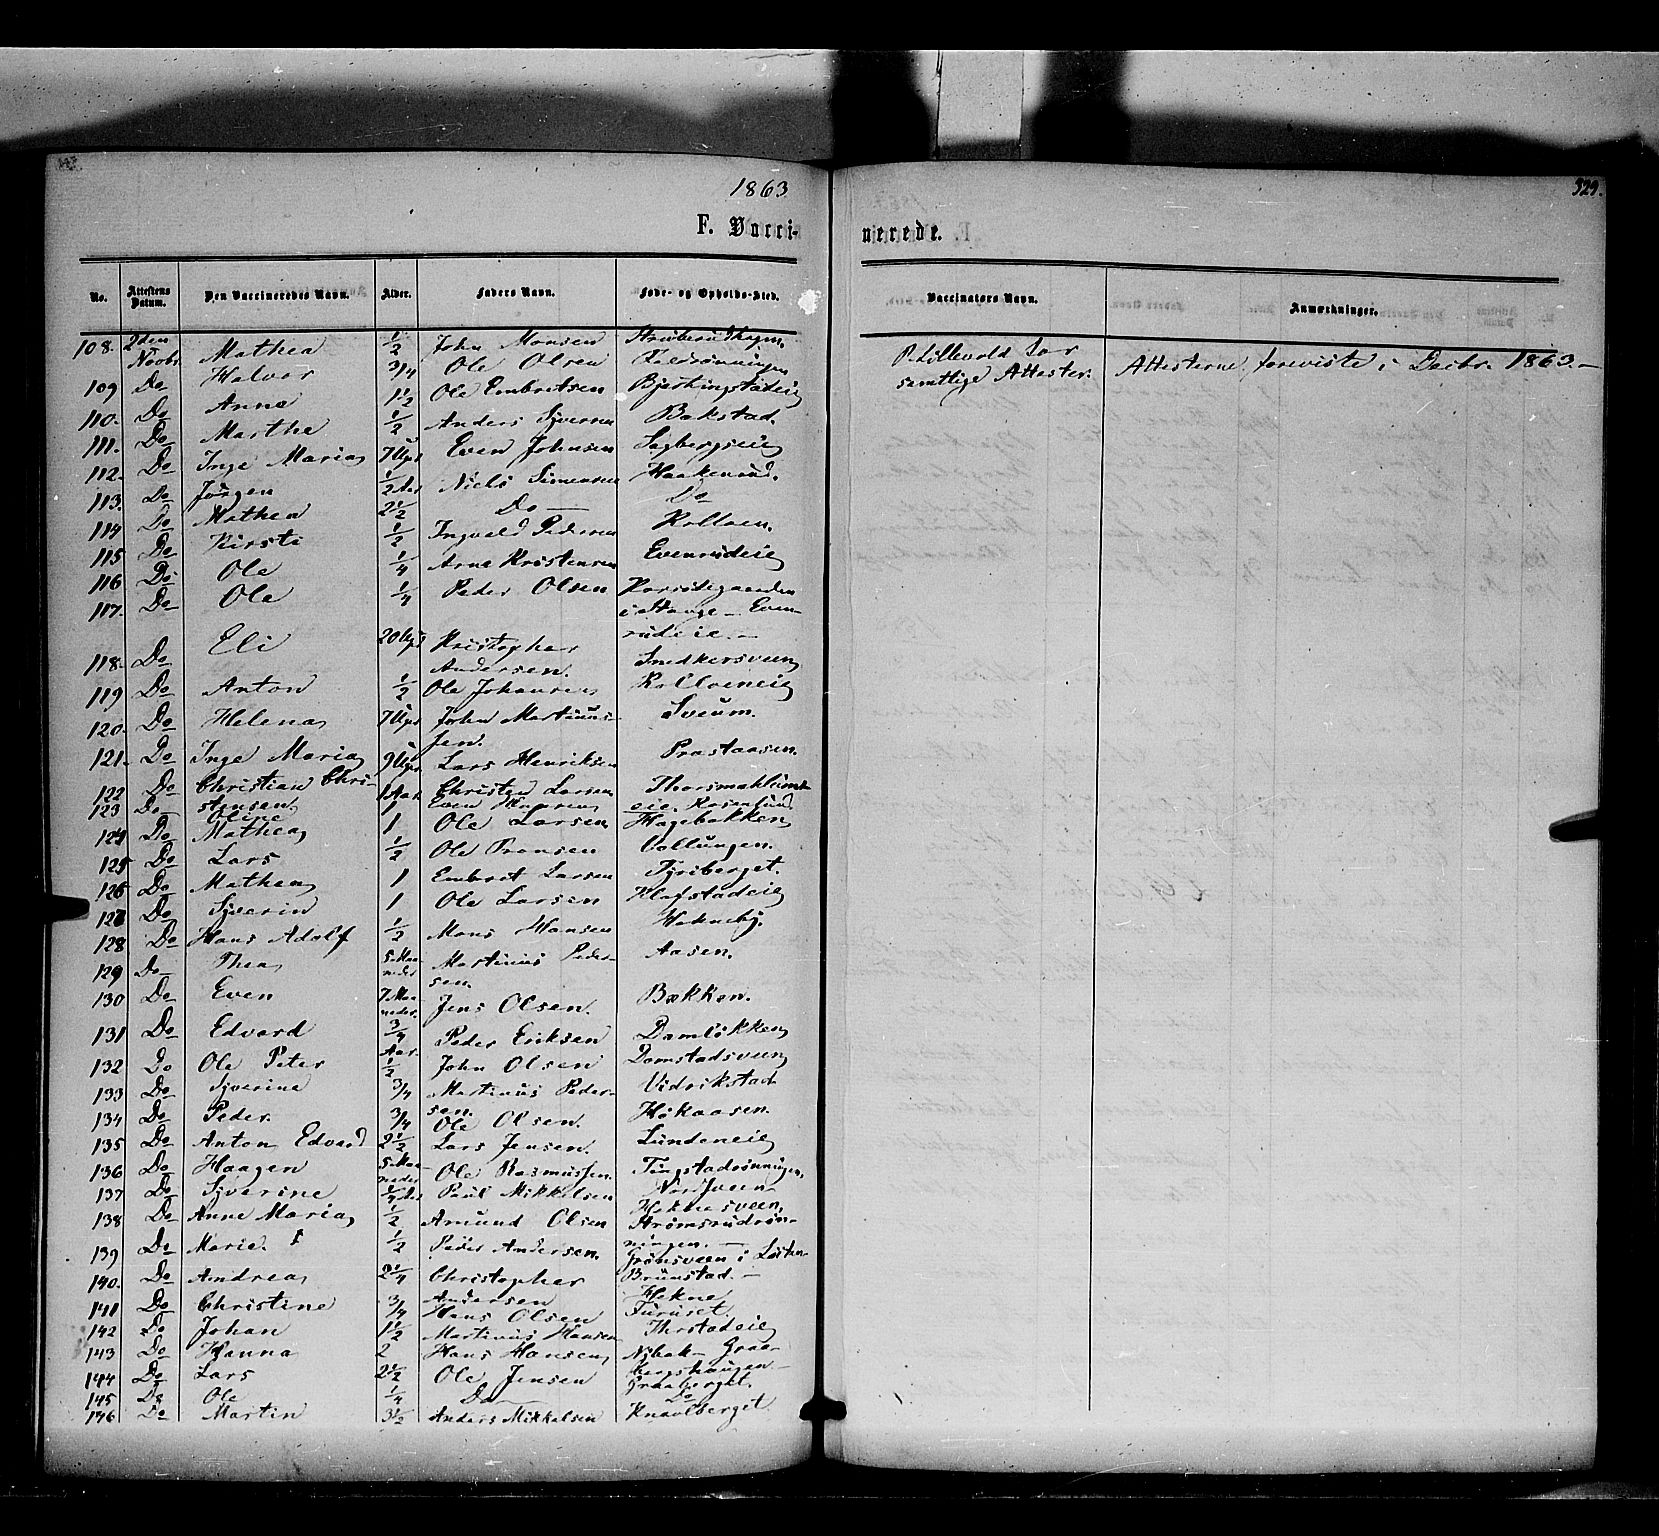 1863
329.
F. Vacci-
nerede.
No. Attestens Datum. Den Vaccineredes Navn. Alder. Faders Navn. Føde- og Opholds-Sted.
Vaccinators Navn. Anmærkninger.
108. 2den Novbr. Mathea 1/2 John Monsen
P. Lillevold for
samtlige Attester.
Attesterne foreviste i Decbr. 1863.-
109 Do Halvor 3/4 Ole Olsen
110. Do Anne 1 1/2 Ole Embretsen
111. Do Marthe 1/2 Anders Syvern Bakstad.
112. Do Inge Maria 7 Uger Even Johnsen Sagbergseie
113. Do Jörgen 1/2 Aar Niels Simensen Haakenrud.
114 Do Mathea 2 1/2 Do Do
115 Do Kirsti 1/2 Ingvald Pedersen Kolloen.
116 Do Ole 1/4 Arne Kristensen Evenrudeie
117. Do Ole 1/4 Peder Olsen
i Stange - Even-
rudeie.-
118. Do Eli 20 Uger Kristopher
Andersen. Snedkersveen
119 Do Anton 1/2 Ole Johansen Kolloeneie
120. Do Helena 7 Uger John Martinus-
sen. Sveum.
121. Do Inge Maria 9 Uger Lars Henriksen Prestaasen.
122 Do Christian Chri-
stensen 1 Aar Christen Larsen
123 Do Oline 1 Even Rosenlund
124 Do Mathea 1 Ole Larsen Hagebakken
125 Do Lars 1/2 Ole Fransen
126 Do Mathea 1 Embret Larsen Tyriberget.
127 Do Syverin 1 Ole Larsen Klafstadeie
128 Do Hans Adolf 1/2 Mons Hansen Hekneby.
129 Do Thea 5 Maa-
neder Martinus Peder-
sen. Aasen.
130 Do Even 7 Maa-
neder. Jens Olsen. Bækken.
131 Do Edvard 3/4
Aar. Peder Eriksen Damløkken
132 Do Ole Peter 1/2 John Olsen Domstadsveen
133 Do Syverine 3/4 Martinus Peder-
sen. Vidrikstad
134 Do Peder. 3/4 Ole Olsen. Høkaasen.
135 Do Anton Edvard 2 1/2 Lars Jensen. Lundeneie
136 Do Haagen 5 Maa-
neder Ole Rasmussen. Tingstadrønningen.
137 Do Syverine 1/4 Aar Paul Mikkelsen Nordsveen
138 Do Anne Maria 1/2 Amund Olsen Heknesveen,
Strømsrudrøn-
ningen. -
139 Do Marie. 1/2 Peder Andersen. Grønsveen i Løiten
140. Do Andrea 2 1/4 Christopher
Andersen Brunstad. -
141 Do Christine 3/4 Hans Olsen Hekne
Furuset.
142 Do Johan 1 1/2 Martinus Hansen
143 Do Hanna 2 Hans Hansen Nybak - Graa-
144 Do Lars 2 1/2 Ole Jensen Graaberget.
145 Do Ole 1/4 Do Do
146 Do Martin 3 1/2 Anders Mikkelsen Knaolberget